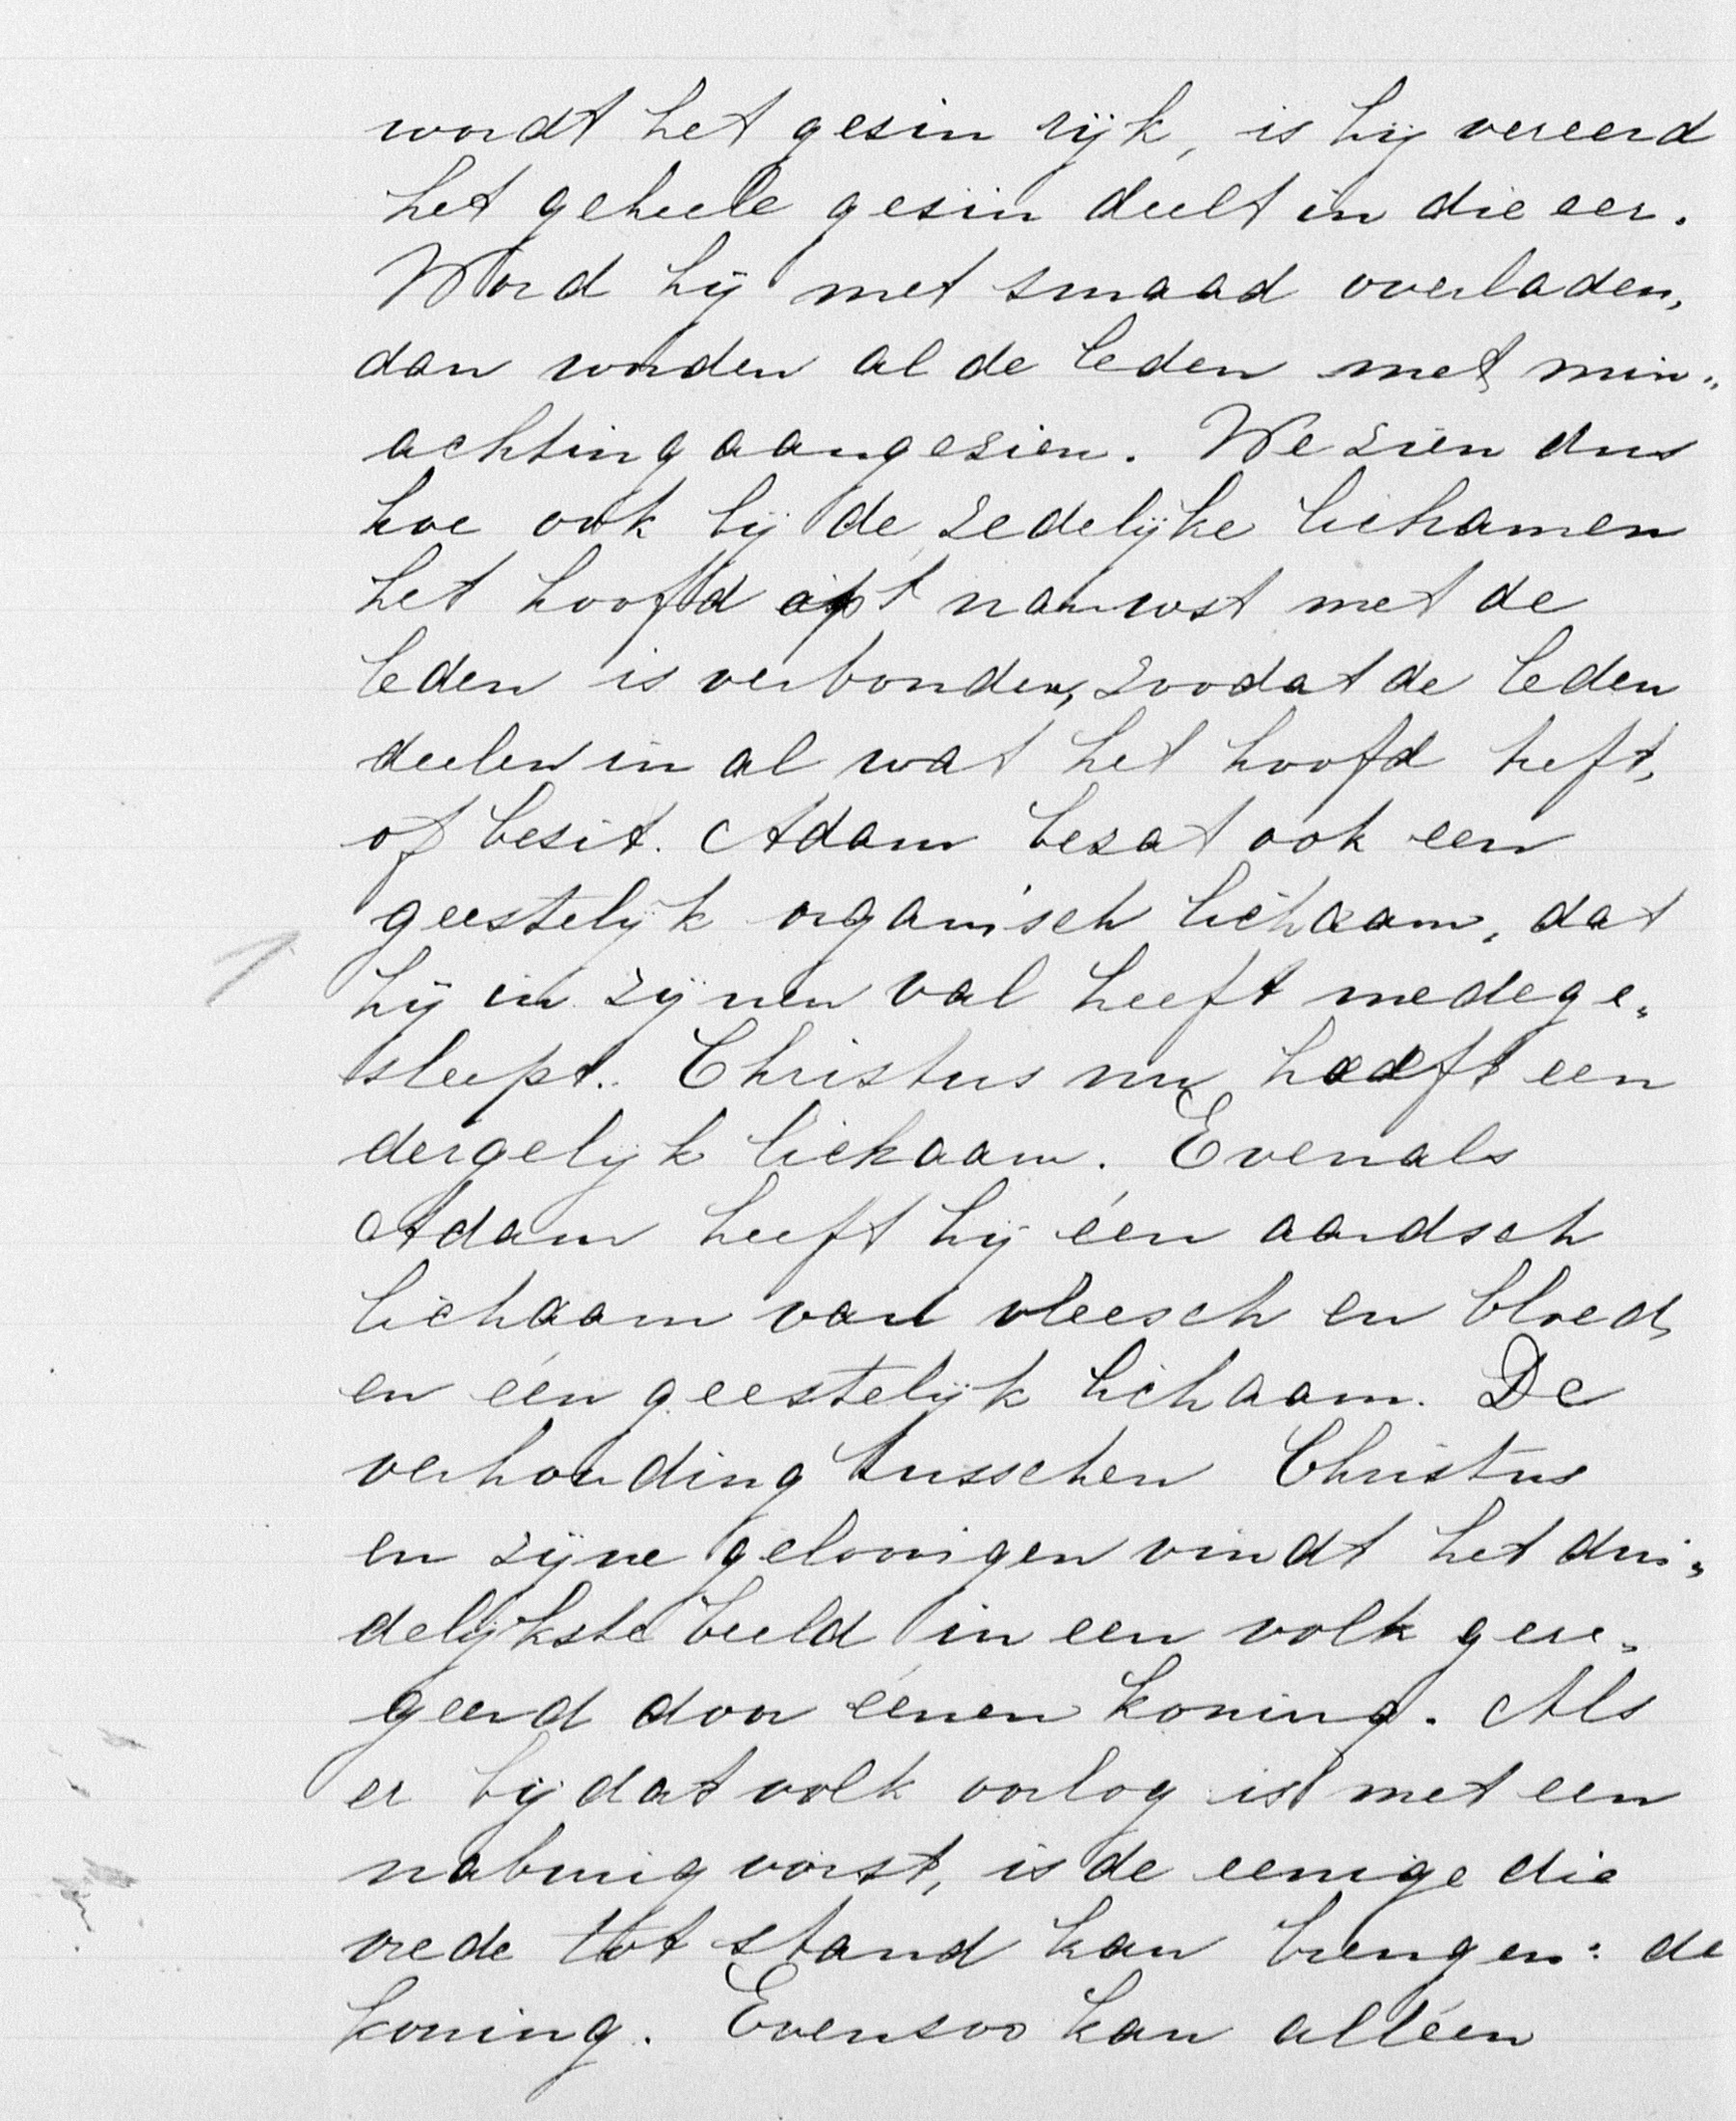 wordt het gesin rijk, is hij vereerd
het geheele gesin deelt in die eer.
Word hij met smaad overladen,
dan worden al de leden met min„
achting aangesien. We sien dus
hoe ook bij de zedelijke lichamen
het hoofd opt nauwst met de
leden is verbonden, zoodat de leden
deelen in al wat het hoofd heft,
of besit. Adam bezat ook een
geestelijk organisch lichaam, dat
hij in zijnen val heeft medege„
sleept. Christus nu heeft een
dergelijk lichaam. Evenals
Adam heeft hij één aardsch
lichaam van vleesch en bloed,
en één geestelijk lichaam. De
verhouding tusschen Christus
en zijne geloovigen vindt het dui„
delijkste beeld in een volk gere„
geerd door éénen koning. Als
er bij dat volk oorlog is met een
naburig vorst, is de eenige die
vrede tot stand kan brengen: de
koning. Evensoo kan alléén